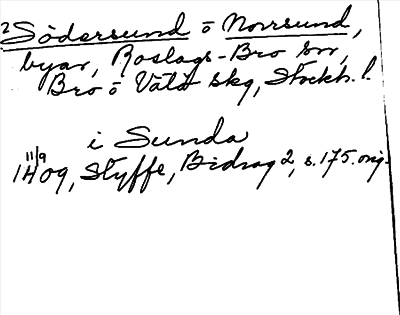 2 Södersund o Norrsund,
byar, Roslags-Bro sn,
Bro o Vätö skg, Stockh. l.
i Sunda
11/9
1409, Styffe, Bidrag 2, s. 175. orig.